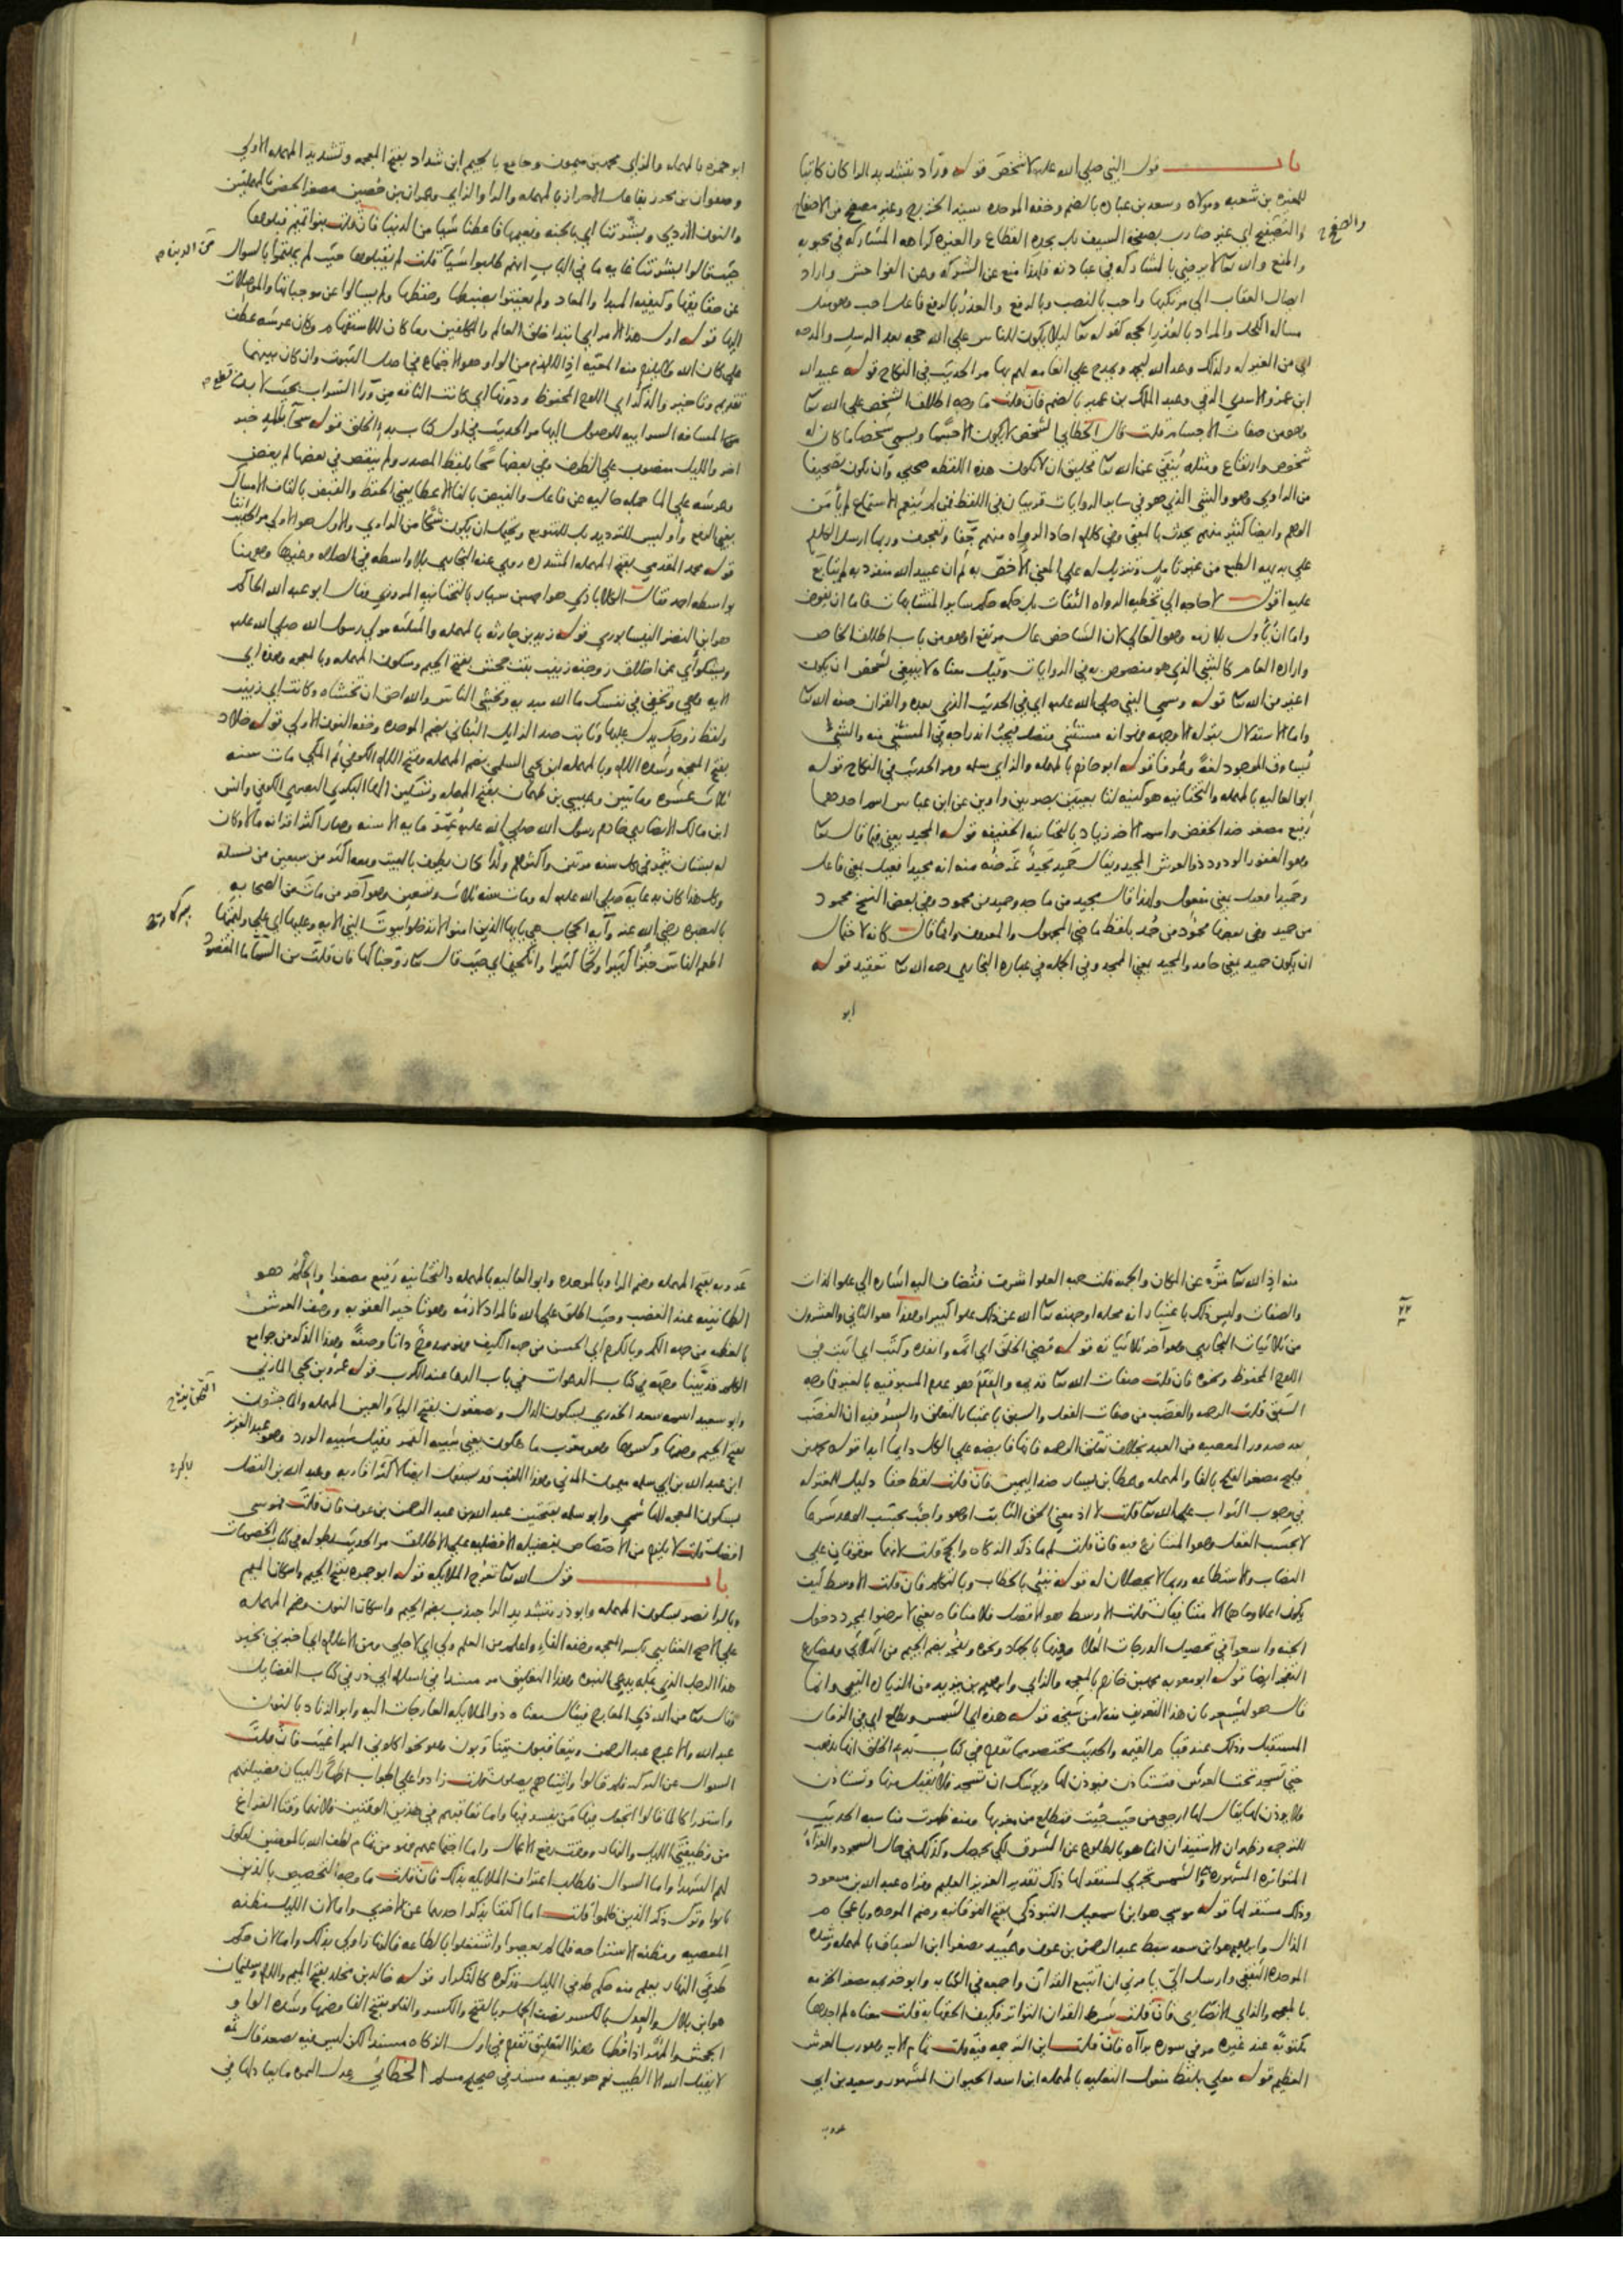 باب قول النبي صلى الله عليه لا شخص قوله وراد بتشديد الرا كان كاتبا
للمغيره بن شعبه ومولاه وسعد بن عباده بالضم وخفه الموحده سيد الخزرج وغير مصفح من الاصفاح
والتصفيح اي غير ضارب بصفحة السيف بل بحده القطاع والغيره كراهه المشاركه في محبوبه
والمنع والله تعا لا يرضى بالمشاركه في عبادته فلهذا منع عن الشرك وعن الفواحش واراد
ايصال العقاب الى مرتكبها واحب بالنصب وبالرفع والعذر بالرفع فاعل احب وهو مثل
مساله الكحل والمراد بالعذر الحجه كقوله تعا ليلا يكون للناس على الله حجه بعد الرسل والمدحه
ابن عمرو الاسدي الرقي وعبد الملك بن عمير بالضم فان قلت ما وجه اطلاق الشخص على الله تعا
وهو من صفات الاجسام قلت قال الخطابي الشخص لا يكون الا جسما ويسمى شخصا ما كان له
شخوص وارتفاع ومثله ينفى عن الله تعا فخليق ان لا تكون هذه اللفظه صحيحه وان تكون تصحيفا
من الراوي وهو والشي الذي هو في ساير الروايات قريبان في اللفظ فمن لم ينعم الاستماع لم يأمن
الوهم وايضا كثير منهم يحدث بالمعنى وفي كلام احاد الرواه منهم جفا وتعجرف وربما ارسل الكلام
على بديه الطبع من غير تامل وتنزيل له على المعنى الاخص به ثم ان عبيد الله منفرد به لم يتابع
عليه اقول لا حاجه الى تخطيه الرواه الثقات بل حكمه حكم ساير المتشابهات فاما ان يفوض
واما ان يأول بلازمه وهو العالي لان الشاخص عال مرتفع او هو من باب اطلاق الخاص
واراده العام كالشي الذي هو منصوص به في الروايات وقيل معناه لا ينبغي لشخص ان يكون
اغير من الله تعا قوله وسمى النبي صلى الله عليه اي في الحديث الذي بعده والقران صفه الله تعا
ابو العاليه بالمهمله والتحتانيه هو كنيه لتابعيين بصريين راويين عن ابن عباس اسم احدهما
رفيع مصغر ضد الخفض واسم الاخر زياد بالتحتانيه الخفيفه قوله المجيد يعني فيما قال تعا
وهو الغفور الودود ذو العرش المجيد ويقال حميد مجيد غرضه منه انه مجيدا فعيل بمعنى فاعل
وحميدا فعيل بمعنى مفعول ولهذا قال مجيد من ماجد وحميد من محمود وفي بعض النسخ محمود
من حميد وفي بعضها محمود من حمد بلفظ ماضي المجهول والمعروف وانما قال كانه لاحتمال
ان يكون حميد بمعنى حامد والمجيد بمعنى الممجد وفي الجمله في عباره البخاري رحمه الله تعا تعقيد قوله
ابو
ابو حمزه بالمهمله والزاي محمد بن ميمون وجامع بالجيم ابن شداد بفتح المعجمه وتشديد المهمله الاولى
وصفوان بن محرز بفاعل الاحراز بالمهمله والرا والزاي وعمران بن حصين مصغر الحصن بالمهملتين
والنون الازدي وبشرتنا اي بالجنه ونعيمها فاعطنا شيا من الدنيا فان قلت بنو تميم قبلوها
حيث قالوا بشرتنا غايه ما في الباب انهم طلبوا شيا قلت لم يقبلوها حيث لم يهتموا بالسوال
عن حقايقها وكيفيه المبدا والمعاد ولم يعتنوا بضبطها وحفظها ولم يسالوا عن موجباتها والموصلات
اليها قوله اول هذا الامر اي ابتدا خلق العالم والمكلفين وما كان للاستفهام وكان عرشه عطف
على كان الله ولا يلزم منه المعيه اذ اللازم من الواو هو الاجتماع في اصل الثبوت وان كان بينهما
تقديم وتاخير والذكر اي اللوح المحفوظ ودونها اي كانت الناقه من ورا السراب بحيث لا بد
قوله محمد المقدمي بفتح المهمله المشدده روى عنه البخاري بلا واسطه في الصلاه وغيرها وهو هنا
بواسطه احمد فقال الكلاباذي هو احمد بن سيار بالتحتانيه المروزي وقال ابو عبد الله الحاكم
هو ابن النضر النيسابوري قوله زيد بن حارثه بالمهمله والمثلثه مولى رسول الله صلى الله عليه
ويشكو اي عن اخلاق زوجته زينب بنت جحش بفتح الجيم وسكون المهمله وبالمعجمه وهذه اي
الايه وهي وتخفي في نفسك ما الله مبديه وتخشى الناس والله احق ان تخشاه وكانت اي زينب
ولفظ زوجك يدل عليها وثابت ضد الزايل البناني بضم الموحده وخفه النون الاولى قوله خلاد
بفتح المعجمه وشده اللام وبالمهمله ابن يحيى السلمي بضم المهمله وفتح اللام الكوفي ثم المكي مات سنه
ثلاث عشره وماتين وعيسى بن طهمان بفتح المهمله وتسكين الها البكري البصري الكوفي وانس
ابن مالك الانصاري خادم رسول الله صلى الله عليه عمر ماية الا سنه وصار اكثر اقرانه مالا وكان
له بستان يثمر في كل سنه مرتين واكثرهم ولدا كان يطوف بالبيت ومعه اكثر من سبعين من نسله
وكل هذا كان بدعايه صلى الله عليه له ومات سنه ثلاث وتسعين وهو اخر من مات من الصحابه
بالبصره رضي الله عنه وآيه الحجاب هي يايها الذين امنوا لا تدخلوا بيوت النبي الايه وعليها اي على وليمتها
اطعم الناس خبزا كثيرا ولحما كثيرا وانكحني اي حيث قال تعا زوجناكها فان قلت من السما ما المقصود
منه اذ الله تعا منزه عن المكان والجهه قلت جهه العلو اشرف فتضاف اليه اشاره الى علو الذات
والصفات وليس ذلك باعتبار انه محله او جهته تعا الله عن ذلك علوا كبيرا وهذا هو الثاني والعشرون
من ثلاثيات البخاري وهو آخر ثلاثياته قوله قضى الخلق اي اتمه وانفذه وكتب اي اثبت في
اللوح المحفوظ ونحوه فان قلت صفات الله تعا قديمه والقدم هو عدم المسبوقيه بالغير فما وجه
السبق قلت الرحمه والغضب من صفات الفعل والسبق باعتبار التعلق والسر فيه ان الغضب
بعد صدور المعصيه من العبد بخلاف تعلق الرحمه فانها فايضه على الكل دايما ابدا قوله محمد بن
فليح مصغر الفلح بالفا والمهمله وعطا بن يسار ضد اليمين فان قلت لفظ حقا دليل للمعتزله
في وجوب الثواب على الله تعا قلت لا اذ معنى الحق الثابت او هو واجب بحسب الوعد شرعا
لا بحسب العقل وهو المتنازع فيه فان قلت لم ما ذكر الزكاه والحج قلت لانهما موقوفان على
النصاب والاستطاعه وربما لا يحصلان له قوله ننبئ بالخطاب وبالتكلم فان قلت الاوسط كيف
يكون اعلا وما هما الا متنافيان قلت الاوسط هو الافضل فلا منافاه يعني لا ترضوا بمجرد دخول
الجنه واسعوا في تحصيل الدرجات العلا
قال هو ليشعر بان هذا التعريف منه لا من شيخه قوله هذه اي الشمس وتطلع اي في الزمان
المستقبل وذلك عند قيام القيمه والحديث مختصر مما تقدم في كتاب بدء الخلق انها تذهب
حتى تسجد تحت العرش فتستاذن فيوذن لها ويوشك ان تسجد فلا يقبل منها وتستاذن
فلا يوذن لها يقال لها ارجعي من حيث جيت فتطلع من مغربها ومنه ظهرت مناسبه الحديث
المتواتره المشهوره والشمس تجري لمستقر لها ذلك تقدير العزيز العليم وقراه عبد الله بن مسعود
وذلك مستقر لها قوله موسى هو ابن اسمعيل التبوذكي بفتح الفوقانيه وضم الموحده وباعجام
الذال وابراهيم هو ابن سعد سبط عبد الرحمن بن عوف وعبيد مصغرا ابن السباق بالمهمله وشده
الموحده الثقفي وارسل الي يا مرني ان اتتبع القران واجمعه في الكتابه وابو خزيمه مصغر الخزمه
بالمعجمه والزاي الانصاري فان قلت شرط القران التواتر فكيف الحقها به قلت معناه لم اجدها
مكتوبة عند غيره مر في سوره براآه فان قلت اين الترجمه فيه قلت تمام الايه وهو رب العرش
العظيم قوله معلى بلفظ مفعول التعليه بالمهمله ابن اسد الحيوان المشهور وسعيد بن ابي
عروبه
عروبه بفتح المهمله وضم الرا وبالموحده وابو العاليه بالمهمله والتحتانيه رفيع مصغرا والحلم هو
الطمانينه عند الغضب وحيث اطلق على الله فالمراد لازمه وهو تاخير العقوبه ووصف العرش
بالعظمه من جهه الكم وبالكرم اي الحسن من جهه الكيف فهو ممدوح ذاتا وصفة وهذا الذكر من جوامع
الكلم قد بينا وجهه في كتاب الدعوات في باب الدعا عند الكرب قوله عمرو بن يحيى المازني
وابو سعيد اسمه سعد الخدري بسكون الدال وصعقون بفتح اليا والعين المهمله والماجشون
بفتح الجيم وضمها وكسرها وهو معرب ماه كون يعني شبيه القمر وقيل شبيه الورد وهو عبد العزيز
ابن عبد الله بن ابي سلمه ميمون المدني وهذا اللقب قد يستعمل ايضا لاكثر اقاربه وعبد الله بن الفضل
بسكون المعجمه الهاشمي وابو سلمه بفتحتين عبد الله بن عبد الرحمن بن عوف فان قلت فموسى
افضل قلت لا يلزم من الاختصاص بفضيله الافضليه على الاطلاق مر الحديث بطوله في كتاب الخصومات
باب قول الله تعا تعرج الملايكه قوله ابو جمره بفتح الجيم واسكان الميم
وبالرا نصر بسكون المهمله وابو ذر بتشديد الرا جندب بضم الجيم واسكان النون وضم المهمله
على الاصح الغفاري بكسر المعجمه وخفه الفاء واعلم من العلم ولي اي لاجلي ومن الاعلام اي اخبرني بخبر
هذا الرجل الذي بمكه يدعي النبوه وهذا التعليق مر مسندا في اسلام ابي ذر في كتاب الفضايل
وقال تعا من الله ذي المعارج فيقال معناه ذو الملايكه العارجات اليه وابو الزناد بالنون
عبد الله والاعرج عبد الرحمن ويتعاقبون يتناوبون وهو نحو اكلوني البراغيث فان قلت
السوال عن الترك فلم قالوا واتيناهم يصلون قلت زادوا على الجواب اظهارا لبيان فضيلتهم
واستدراكا لما قالوا اتجعل فيها من يفسد فيها واما تعاقبهم في هذين الوقتين فلانهما وقتا الفراغ
من وظيفتي الليل والنهار ووقت رفع الاعمال واما اجتماعهم فهو من تمام لطف الله بالمومنين ليكون
لهم الشهدا واما السوال فلطلب اعتراف الملايكه بذلك فان قلت ما وجه التخصيص بالذين
باتوا وترك ذكر الذين ظلوا قلت اما اكتفا بذكر احدهما عن الاخرى واما لان الليل مظنه
المعصيه ومظنه الاستراحه فلما لم يعصوا واشتغلوا بالطاعه فالنهار اولى بذلك واما لان حكم
طرفي النهار يعلم منه حكم طرفي الليل فذكره كالتكرار قوله خالد بن مخلد بفتح الميم واللام وسليمان
هو ابن بلال والعدل بالكسر نصف الحمل وبالفتح والكسر والفلو بفتح الفا وضمها وشده الواو
الجحش والمهر اذا فطما وهذا التعليق تقدم في اول الزكاه مسندا لكن ليس فيه يصعد قال ثمه
لا يقبل الله الا الطيب نعم هو بعينه مسند في صحيح مسلم الخطابي عدل التمره ما يعادلها في